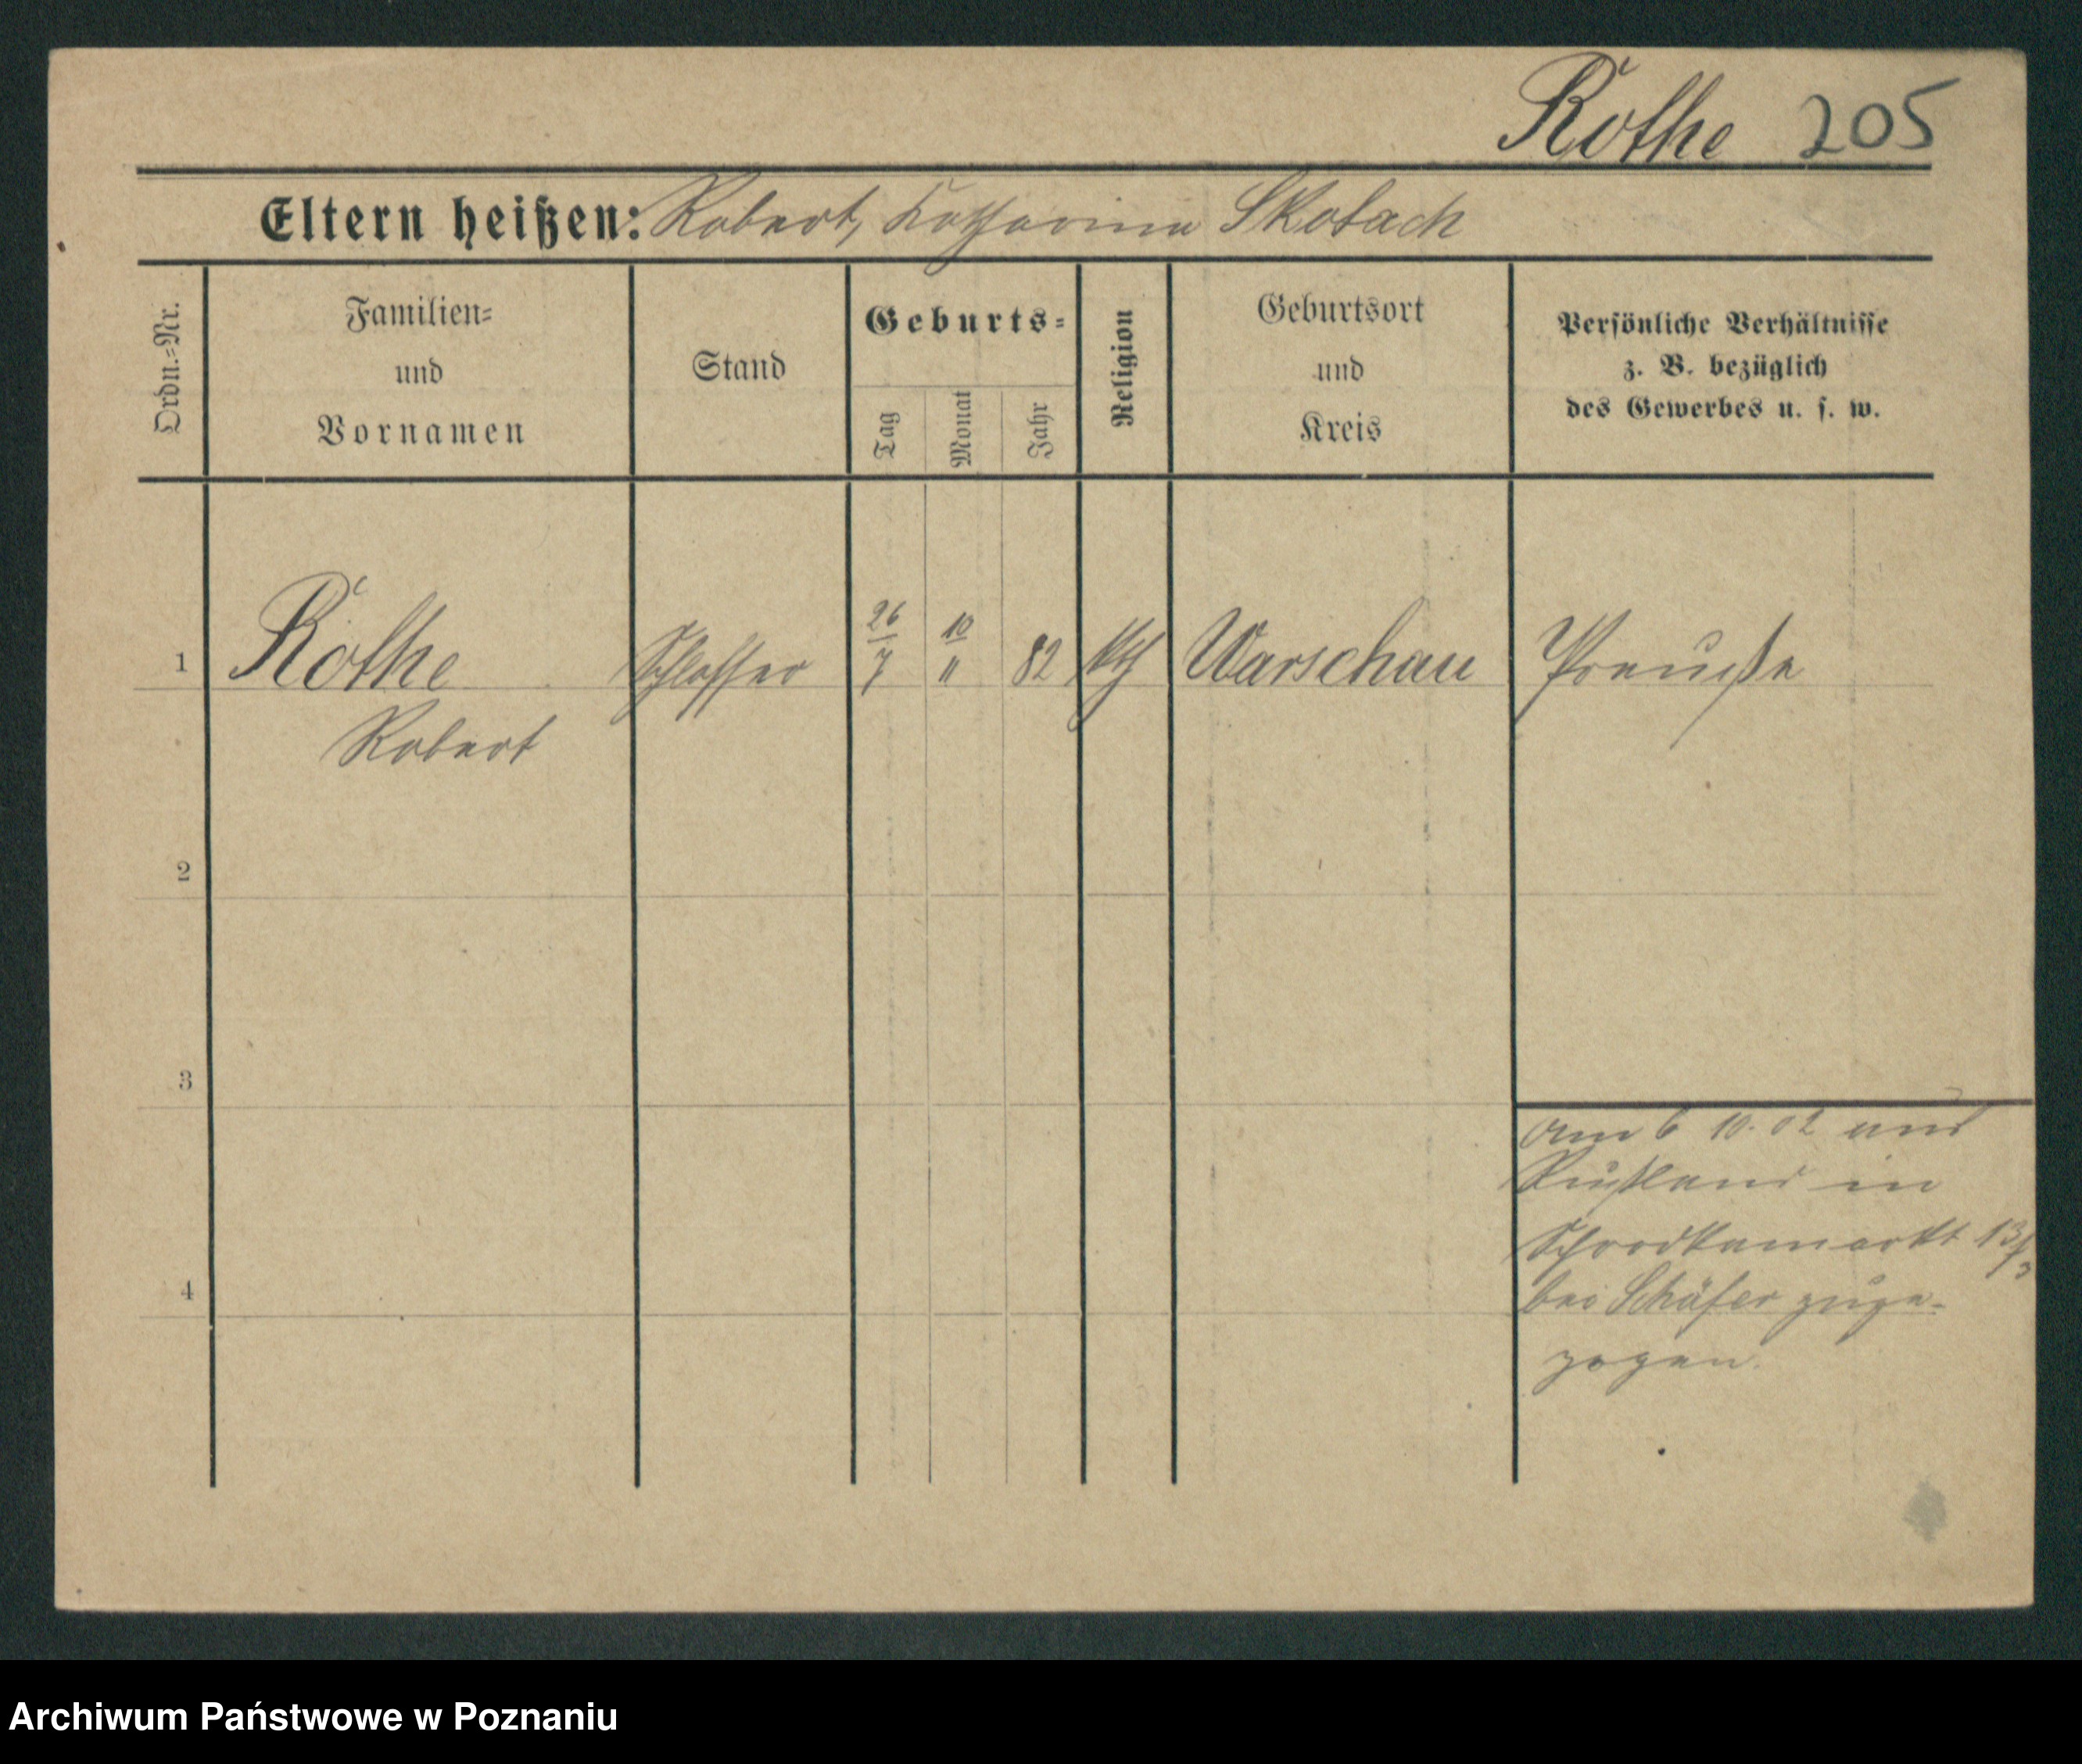 Rothe 205
Eltern heißen: Robert, Katharina Skobach
Ordn.-Nr.
Familien-
und
Vornamen
Stand
Geburts-
Tag
Monat
Jahr
Religion
Geburtsort
und
Kreis
Persönliche Verhältnisse
z. B. bezüglich
des Gewerbes u. s. w.
1 Rothe Schlosser 26/7 10/11 82 kth Warschau Preuße
Robert
2
3
4
Am 6 10. 02 aus
Rußland in
Schrodkamarkt 13/3
bei Schäfer zuge-
zogen.
Archiwum Państwowe w Poznaniu